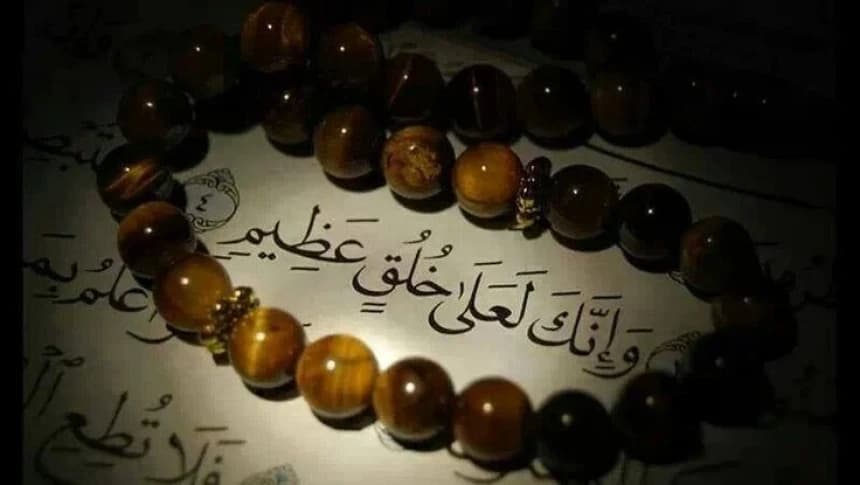 وَإِنَّكَ لَعَلَىٰ خُلُقٍ عَظِيمٍ ٤
أَعْلَمُ بِمَن
فَلَا تُطِعِ